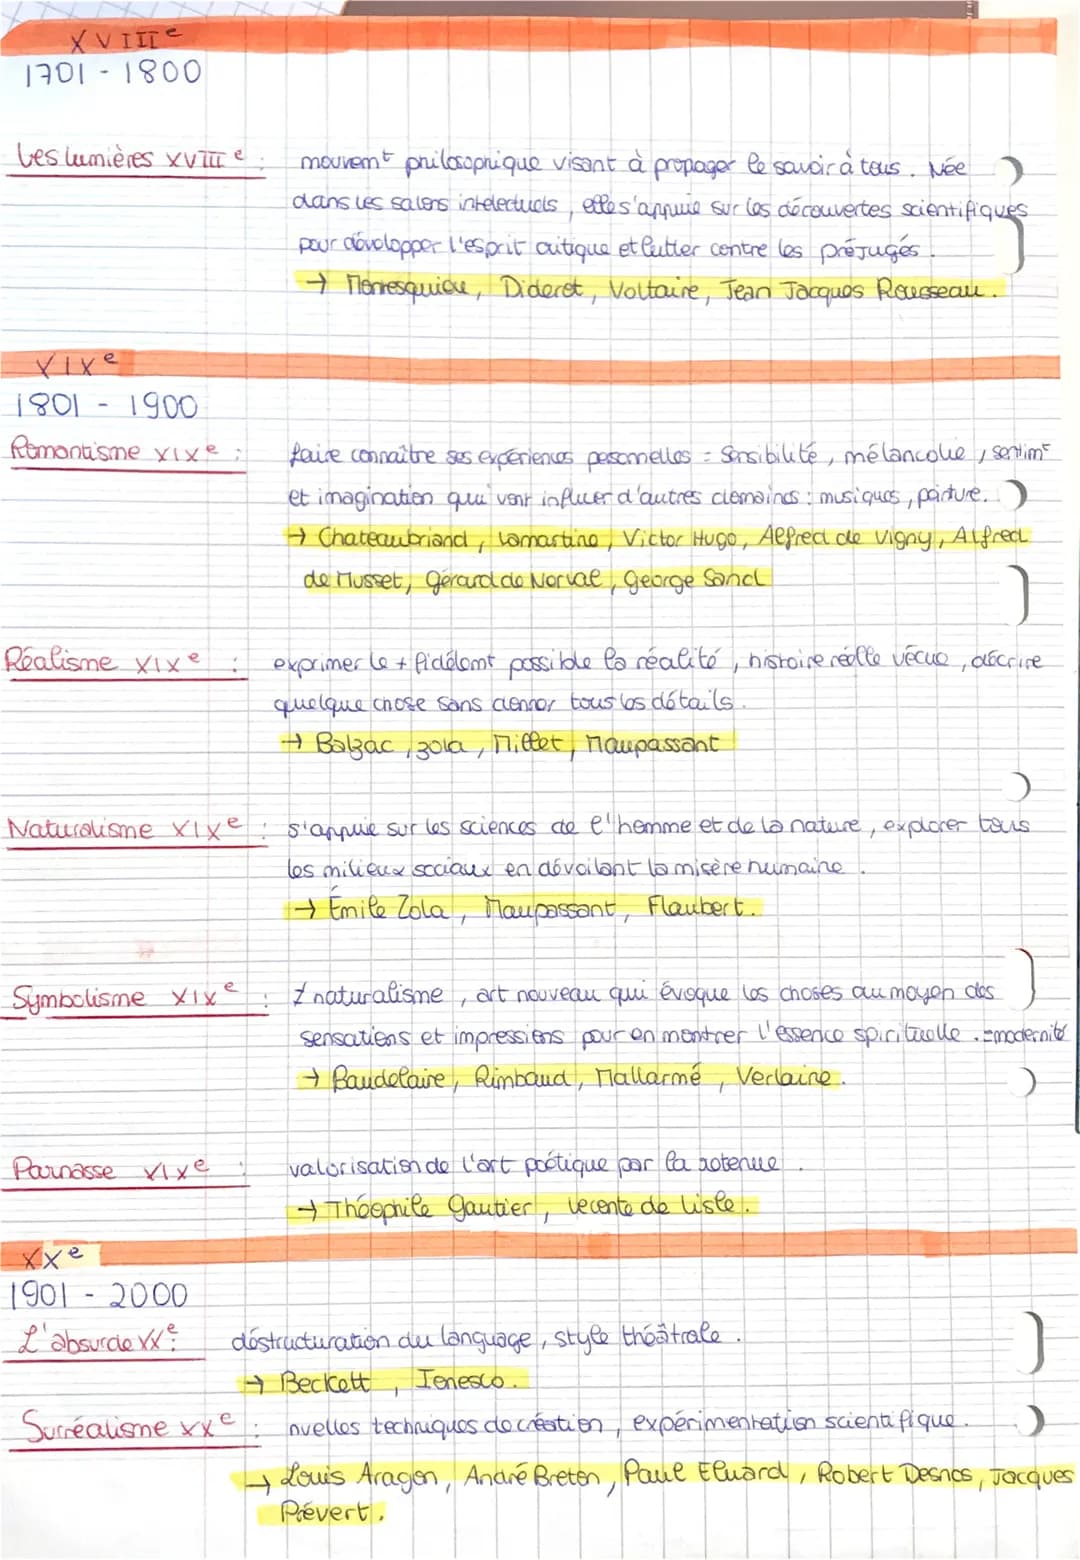 XVIIIe
1701 - 1800
Les lumières XVIIIe : mouvemt philosophique visant à propager le savoir à tous. Née
dans les salons intelectuels, elle s'appuie sur les découvertes scientifiques
pour développer l'esprit critique et lutter contre les préjugés.
→ Montesquieu, Diderot, Voltaire, Jean Jacques Rousseau.
XIXe
1801 - 1900
Romantisme XIXe : faire connaître ses expériences personnelles = Sensibilité, mélancolie, sentimt
et imagination qui vont influer d'autres domaines : musiques, peinture.
→ Chateaubriand, Lamartine, Victor Hugo, Alfred de Vigny, Alfred
de Musset, Gérard de Nerval, George Sand
Réalisme XIXe : exprimer le + fidèlemt possible la réalité, histoire réelle vécue, décrire
quelque chose sans donner tous les détails.
→ Balzac, zola, Millet, Maupassant
Naturalisme XIXe : s'appuie sur les sciences de l'homme et de la nature, explorer tous
les milieux sociaux en dévoilant la misère humaine.
→ Émile Zola, Maupassant, Flaubert.
Symbolisme XIXe : ≠ naturalisme, art nouveau qui évoque les choses au moyen des
sensations et impressions pour en montrer l'essence spirituelle. =modernité
→ Baudelaire, Rimbaud, Mallarmé, Verlaine.
Parnasse XIXe : valorisation de l'art poétique par la retenue.
→ Théophile Gautier, Leconte de Lisle.
XXe
1901 - 2000
L'absurde XXe : déstructuration du language, style théâtrale.
→ Beckett, Ionesco.
Surréalisme XXe : nvelles techniques de création, expérimentation scientifique.
→ Louis Aragon, André Breton, Paul Eluard, Robert Desnos, Jacques
Prévert.